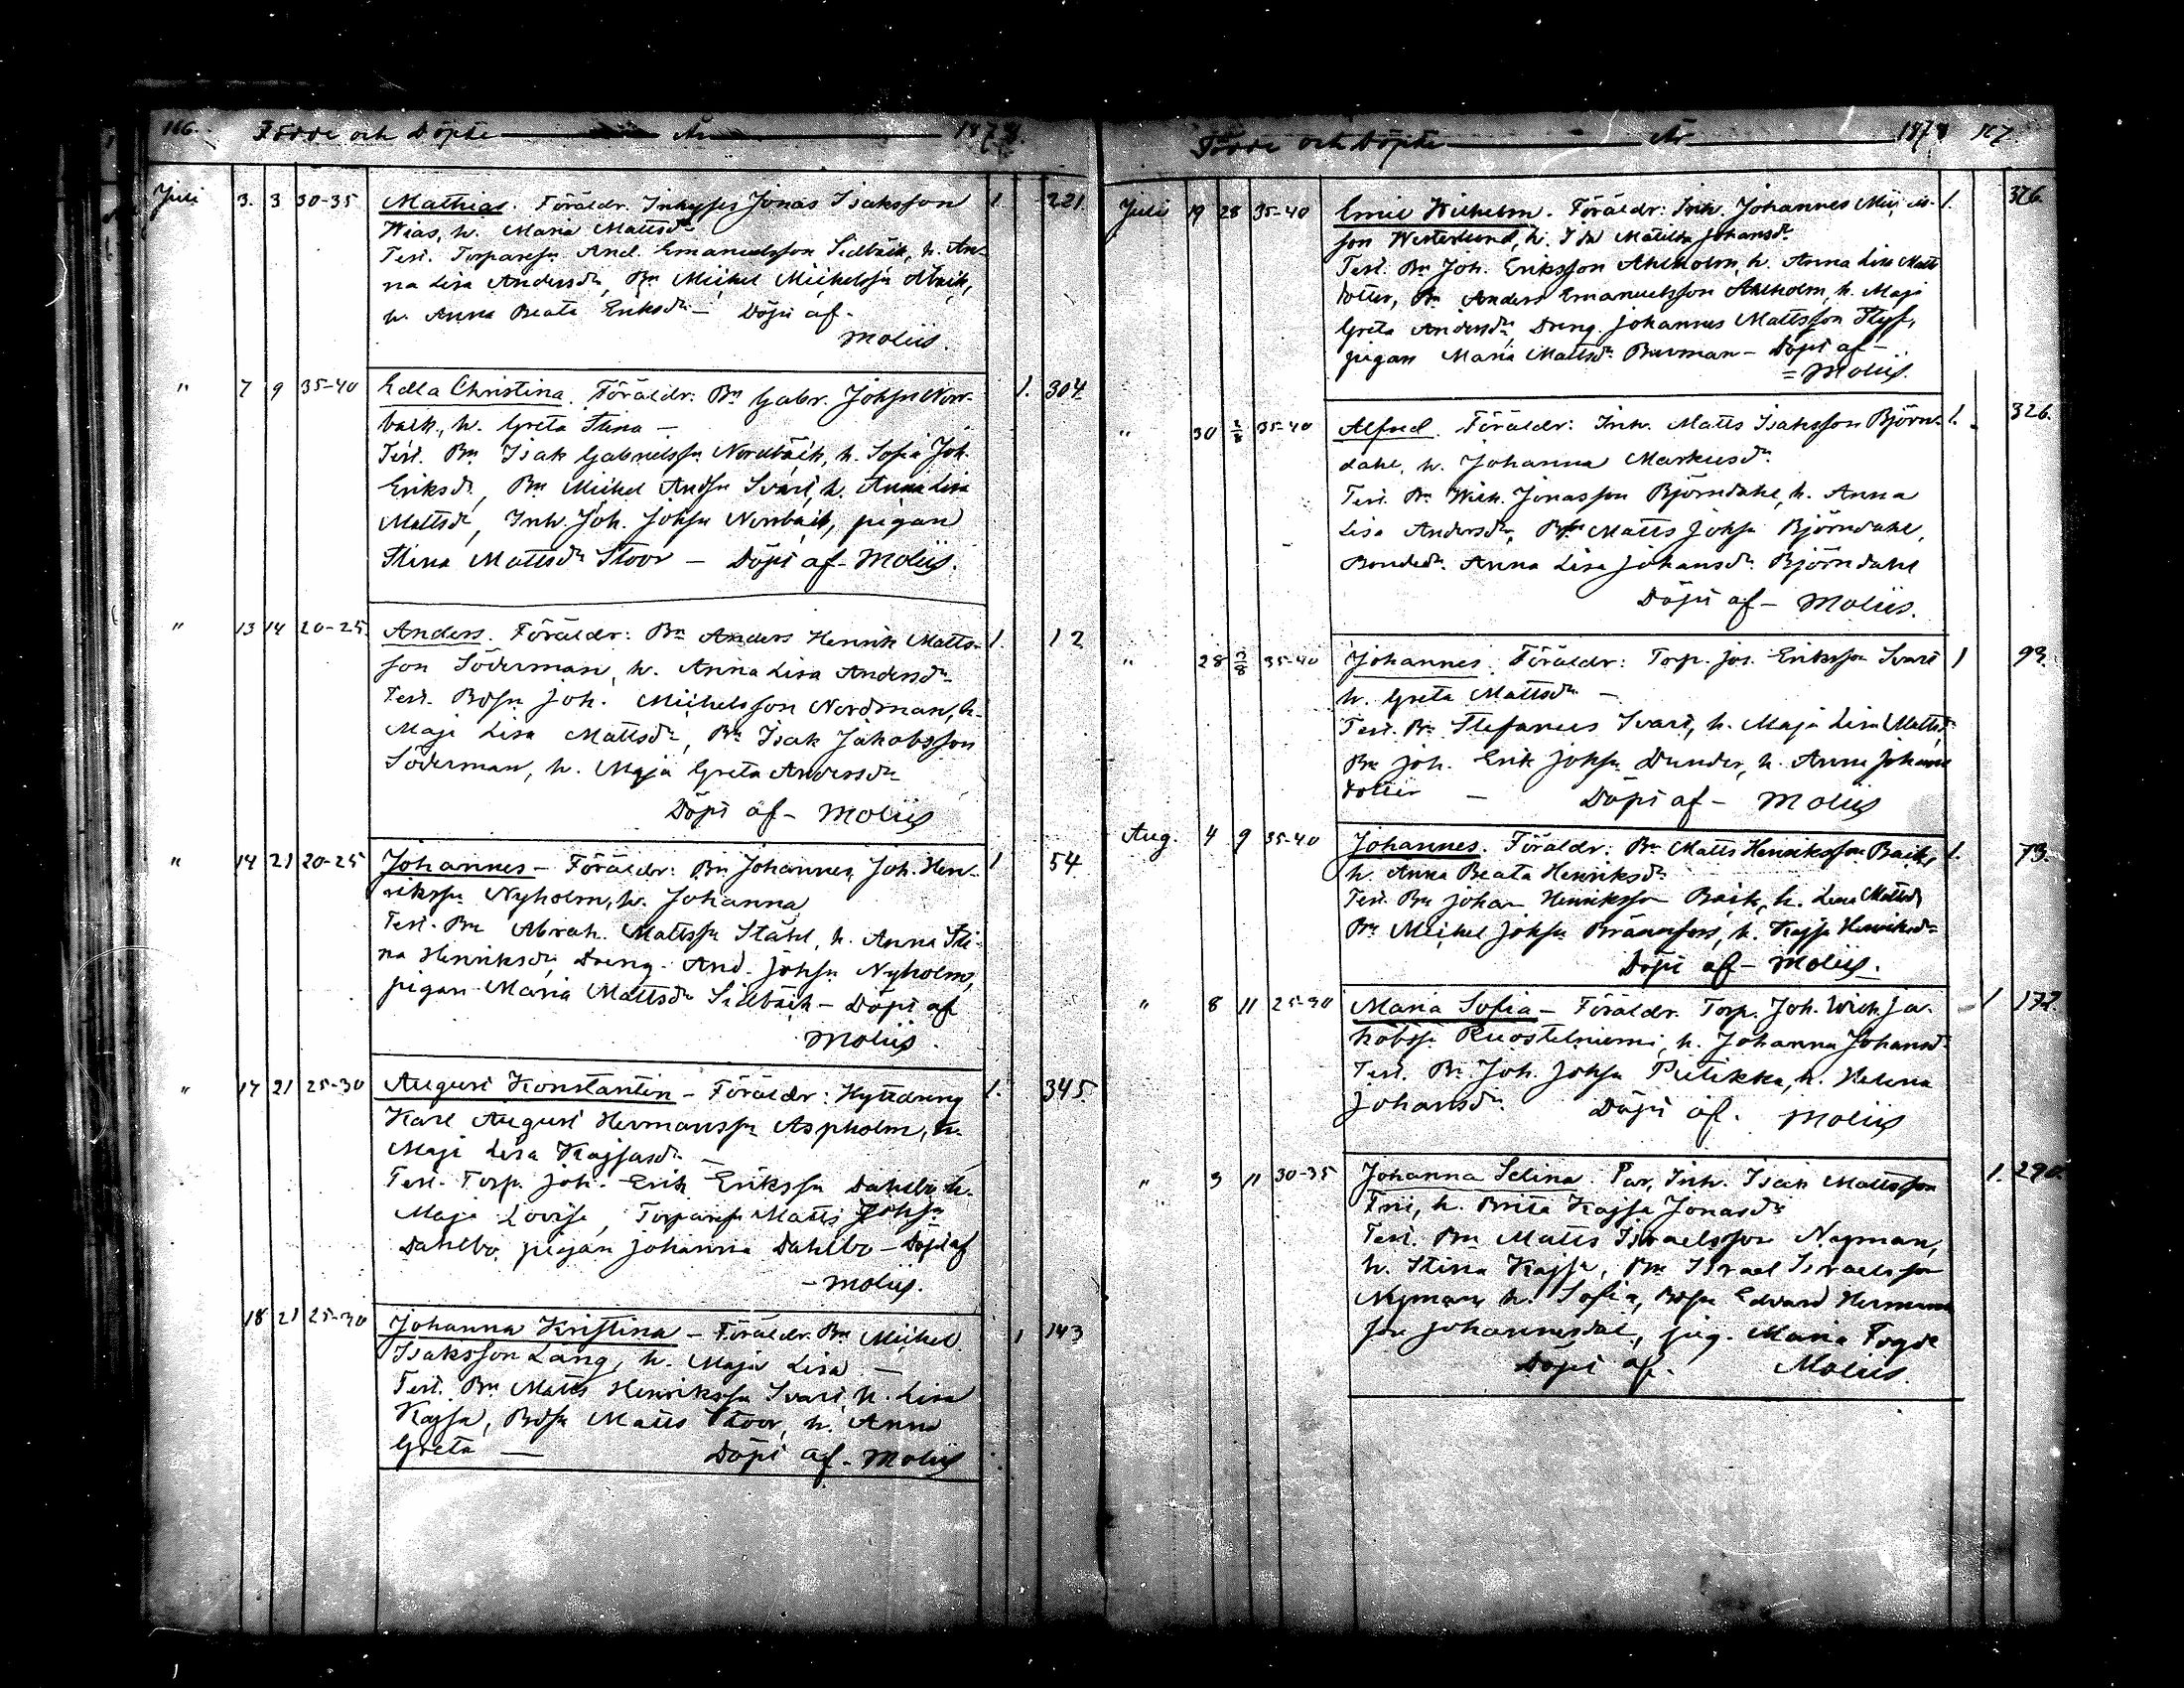 116. Födde och Döpte — År — 1878.
Juli 3. 3 30-35 Mathias. Föräldr. Inhyses Jonas Isaksson 1. 221.
Wias, h. Maria Mattsdr
Test. Torparesn And. Emanuelsson Sidbäck, h. An-
na Lisa Andersdr, Bn Michel Michelsson
h. Anna Beata Eriksdr — Döpt af -
Moliis.
" 7 9 35-40 Edla Christina. Föräldr: Bn Gabr. Johsn Norr-
1. 304.
back, h. Greta Stina —
Test. Bn Isak Gabrielssn Nordbäck, h. Sofia Joh.
Eriksdr, Bn Michel Andsn Svart, h. Anna Lisa
Mattsdr, Inh. Joh. Johsn Norrback, pigan
Stina Mattsdr Stoor — Döpt af - Moliis.
" 13 14 20-25. Anders. Föräldr: Bn Anders Henrik Matts- 1. 12
son Söderman, h. Anna Lisa Andersdr
Test. Bdsn Joh. Michelsson Nordman, h.
Maja Lisa Mattsdr, Bn Isak Jakobsson
Söderman, h. Maja Greta Andersdr
Döpt af - Moliis
" 14 21 20-25 Johannes - Föräldr: Bn Johannes Joh. Hen- 1 54
rikssn Nyholm, h. Johanna
Test. Bn Abrah. Mattssn Ståhl, h. Anna Sti-
na Henriksdr, Dreng. And. Johsn Nyholm,
pigan Maria Mattsdr Sidbäck - Döpt af
Moliis.
" 17 21 25-30 August Konstantin - Föräldr: Hyttdreng 1. 345.
Karl August Hermanssn Aspholm, h.
Maja Lisa Kajsasdr —
Test. Torp. Joh. Erik Erikssn Dahlbo, h.
Maja Lovisa, Torparesn Matts Johsn
Dahlbo, pigan Johanna Dahlbo - Döpt af
- Moliis.
18 21 25-30 Johanna Kristina - Föräldr. Bn Michel 1 143
Isaksson Lang, h. Maja Lisa —
Test. Bn Matts Henrikssn Svart, h. Lisa
Kajsa, Bdsn Matts Stoor, h. Anna
Greta — Döpt af - Moliis
Födde och Döpte — År — 1878 117.
Juli 19 28 35-40 Emil Wilhelm. Föräldr: Inh. Johannes 1. 376.
son Westerlund, h. Ida Matilda Johansdr
Test. Bn Joh. Eriksson Ahlholm, h. Anna Lisa Matts
dotter, Bn Anders Emanuelsson Ahlholm, h. Maja
Greta Andersdr, Dreng. Johannes Mattsson Flyt,
pigan Maria Mattsdr Burman - Döpt af -
= Moliis.
" 30 2/8 35-40 Alfred. Föräldr: Inh. Matts Isaksson Björn- 1. 326.
dahl, h. Johanna Markusdr
Test. Bn Wich. Jonassson Björndahl, h. Anna
Lisa Andersdr, Bdsn Matts Johsn Björndahl,
Bondedr. Anna Lisa Johansdr Björndahl
Döpt af - Moliis.
" 28 3/8 35-40 Johannes. Föräldr: Torp. Jos. Erikssn Svart 1 93.
h. Greta Mattsdr —
Test. Bn Stefanus Svart, h. Maja Lisa Mattsdr
Bn Joh. Erik Johsn Dunder, h. Anna Johans
dotter — Döpt af - Moliis
Aug. 4 9 35-40 Johannes. Föräldr: Bn Matts Henriksson Back, 1. 73.
h. Anna Beata Henriksdr
Test. Bn Johan Henriksson Back, h. Lena Mattsdr
Bn Michel Johsn Brännfors, h. Kajsa Henriksdr
Döpt af - Moliis.
" 8 11 25-30 Maria Sofia - Föräldr. Torp. Joh. Wich. Ja- 1 177.
kobss. Ruostelniemi, h. Johanna Johansdr
Test. Bn Joh. Johsn Pietikka, h. Helena
Johansdr. Döpt af. Moliis
" 9 11 30-35 Johanna Selina. Par, Inh. Isak Mattsson 1. 290.
Frii, h. Brita Kajsa Jonasdr
Test. Bn Matts Israelsson Nyman,
h. Stina Kajsa, Bn Israel Israelsson
Nyman, h. Sofia, Bdsn Edvard Hermans
son Johannesdal, pig. Maria Fogde
Döpt af. Moliis.